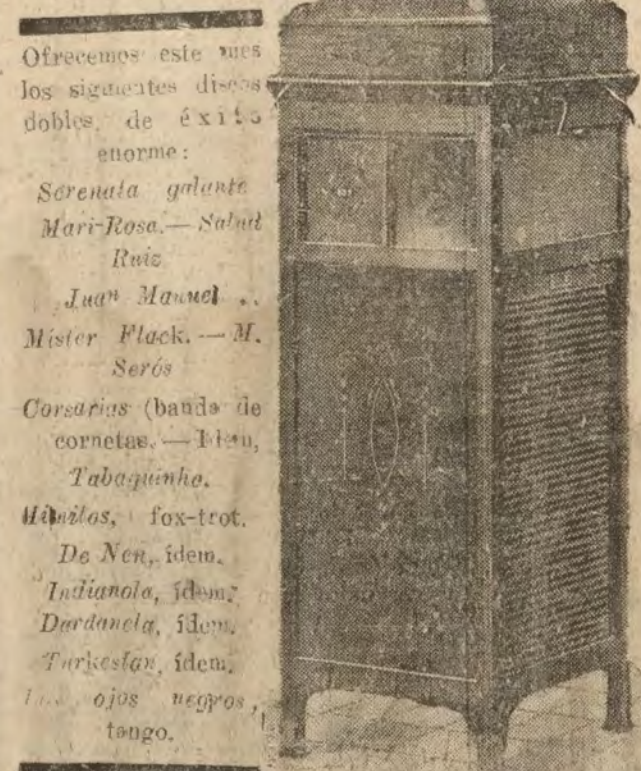 Ofrecemos este mes
los siguientes discos
dobles, de éxito
enorme:
Serenata galante
Mari-Rosa.— Salud
Ruiz
Juan Manuel
Míster Flack.—M.
Serós
Corsarias (banda de
cornetas.—Idem,
Tabaquinho.
fox-trot.
De Nen, ídem.
Indianola, ídem.
Dardanela, ídem.
Turkestan, ídem.
ojos negros,
tango.